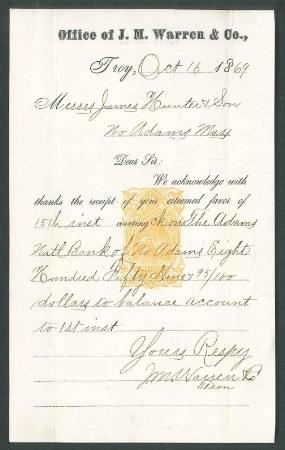 Office of J. M. Warren & Co.,
Troy, Oct 16 1869
Messrs James Hunter & Son
No Adams Mass
Dear Sir:
We acknowledge with
thanks the receipt of your esteemed favor of
15th inst covering ck on The Adams
Natl Bank of No Adams Eight
Hundred Fifty Nine & 95/100
dollars to balance account
to 1st inst
Yours Respy
J M Warren & Co